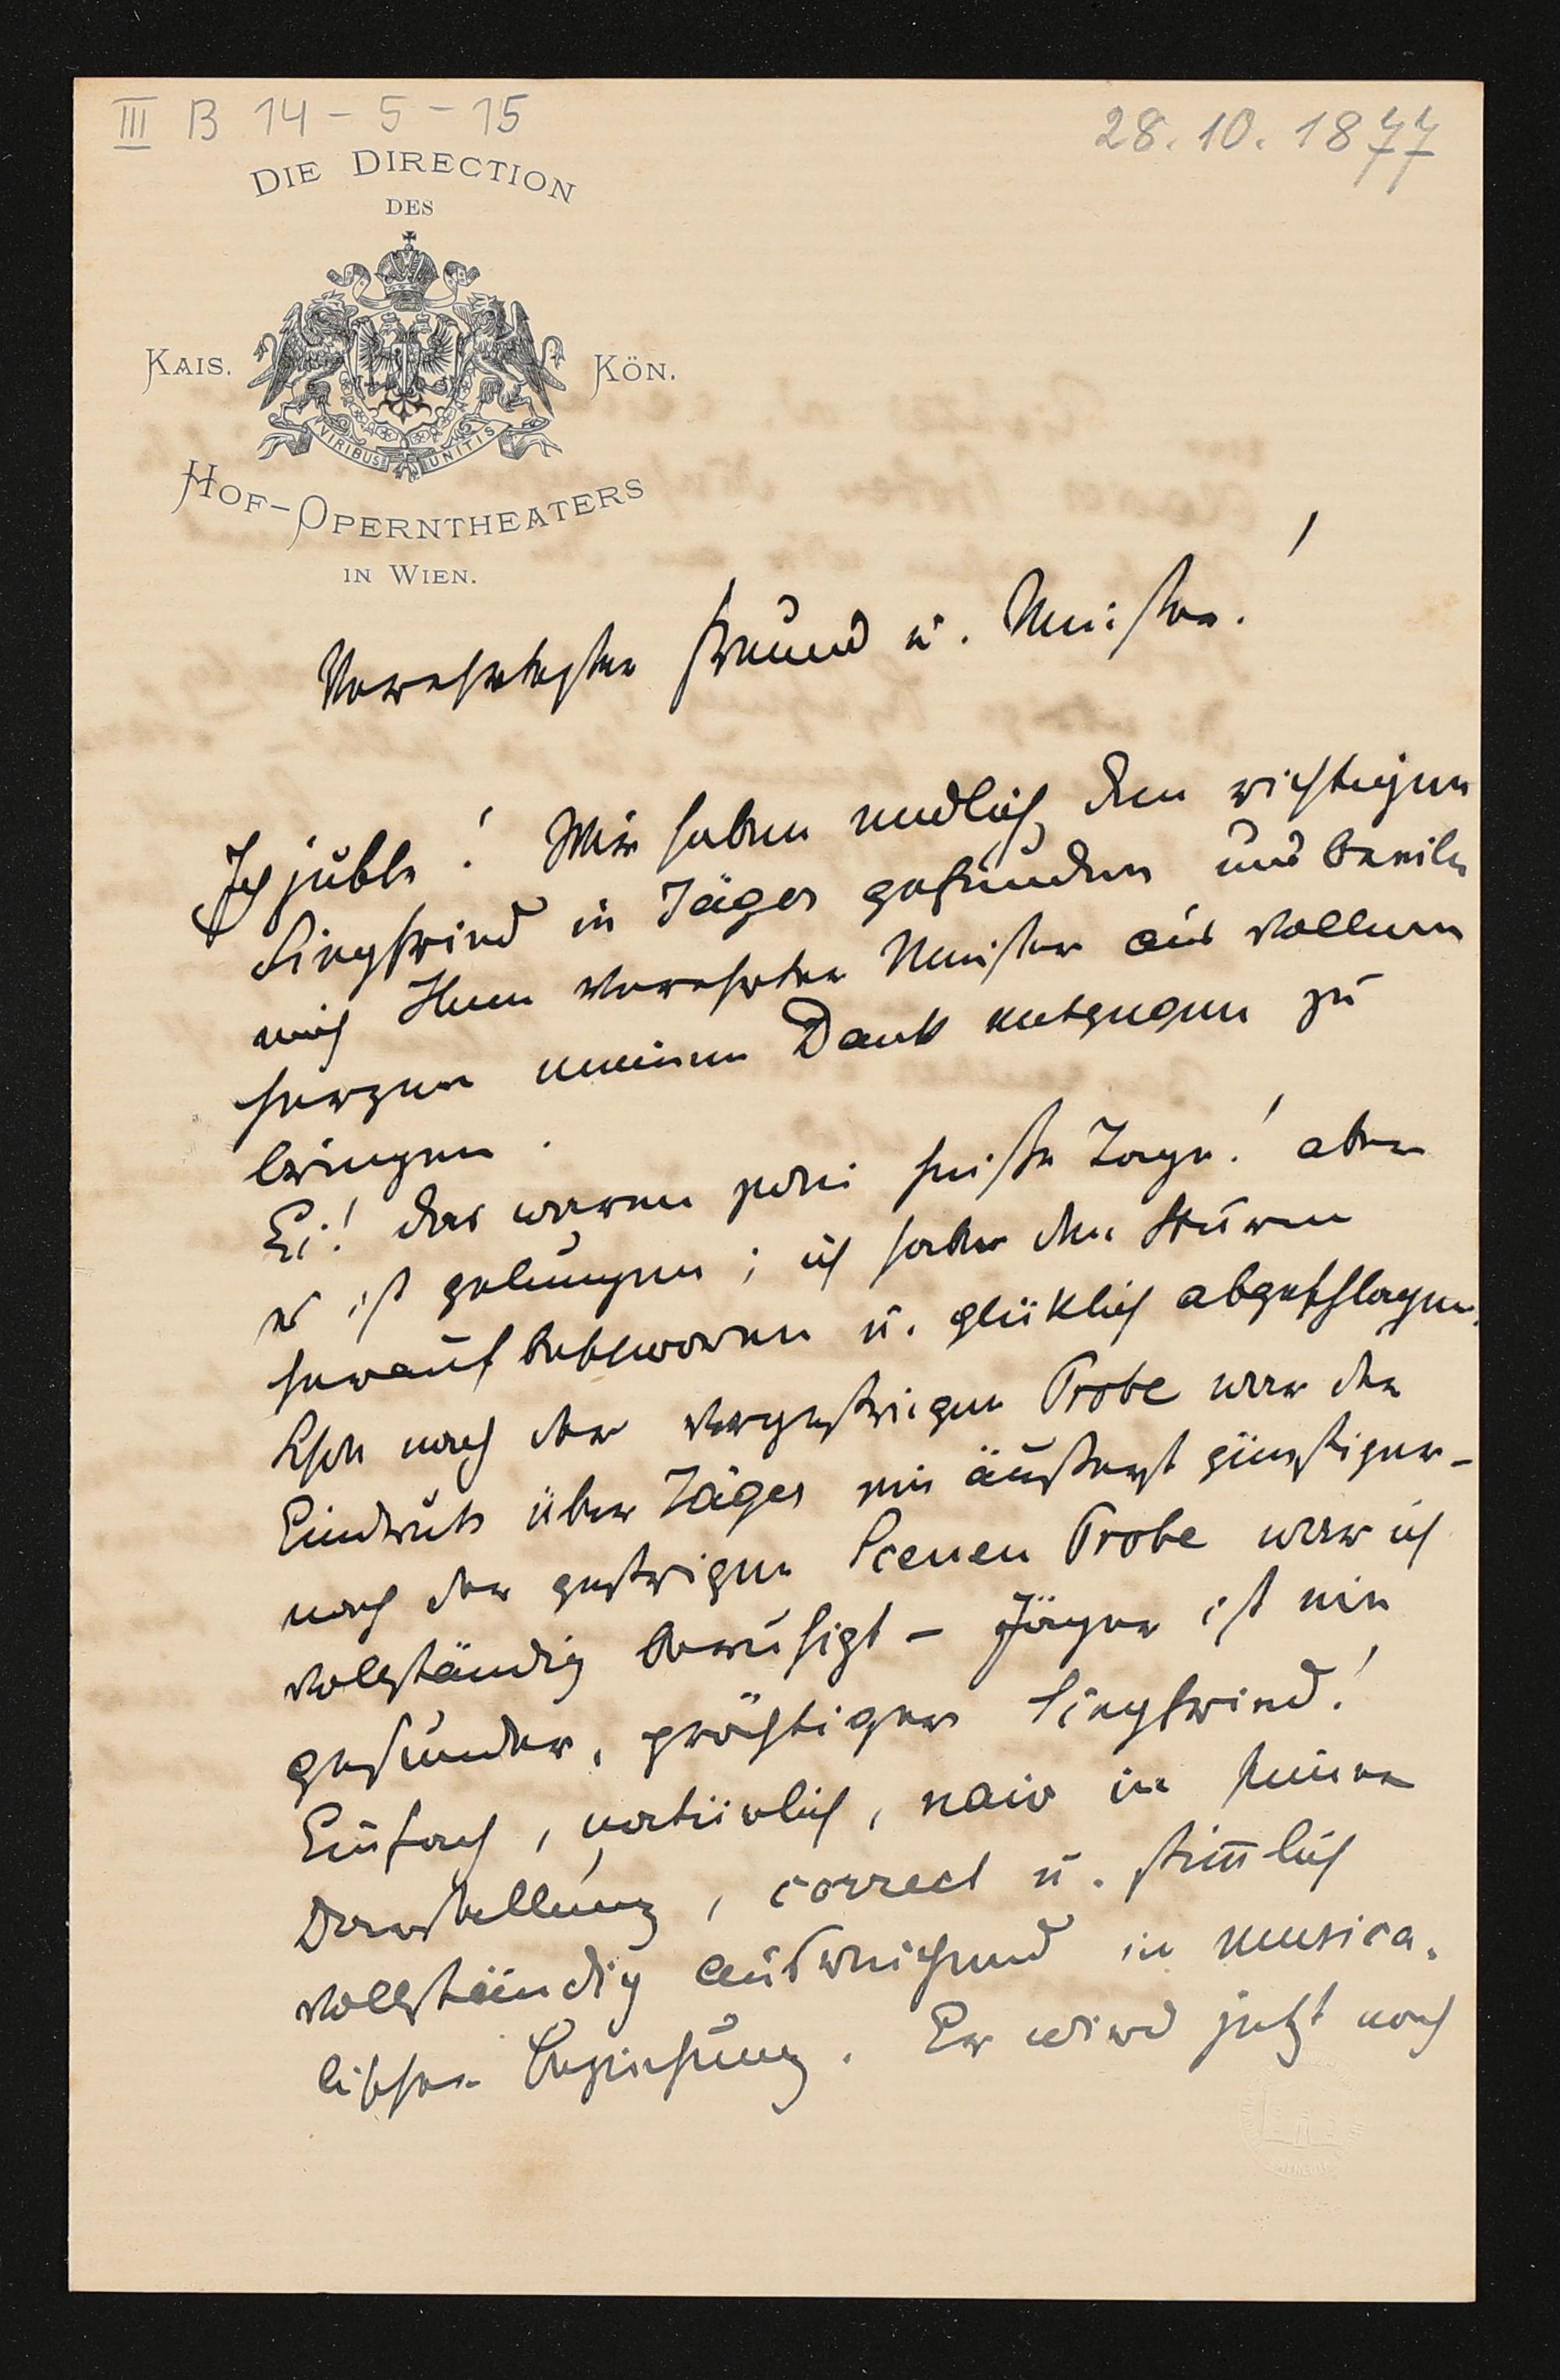 III B 14-5-15
28.10.1877
DIE DIRECTION
DES
KAIS. KÖN.
VIRIBUS UNITIS
HOF-OPERNTHEATERS
IN WIEN.
Verehrtester Freund u. Meister!
Ich juble! Wir haben endlich den richtigen
Siegfried in Jäger gefunden und beeile
mich Ihnen verehrter Meister aus vollem
Herzen meinen Dank entgegen zu
bringen.
Ei! das waren zwei heiße Tage! aber
es ist gelungen; ich habe den Sturm
heraufbeschworen u. glüklich abgeschlagen.
Schon nach der vorgestrigen Probe war der
Eindruk über Jäger ein äußerst günstiger –
nach der gestrigen Scenen Probe war ich
vollständig beruhigt – Jäger ist ein
gesunder, prächtiger Siegfried!
Einfach, natürlich, naiv in seiner
Darstellung, correct u. stim̅lich
vollständig ausreichend in musica-
lischer Beziehung. Er wird jetzt noch